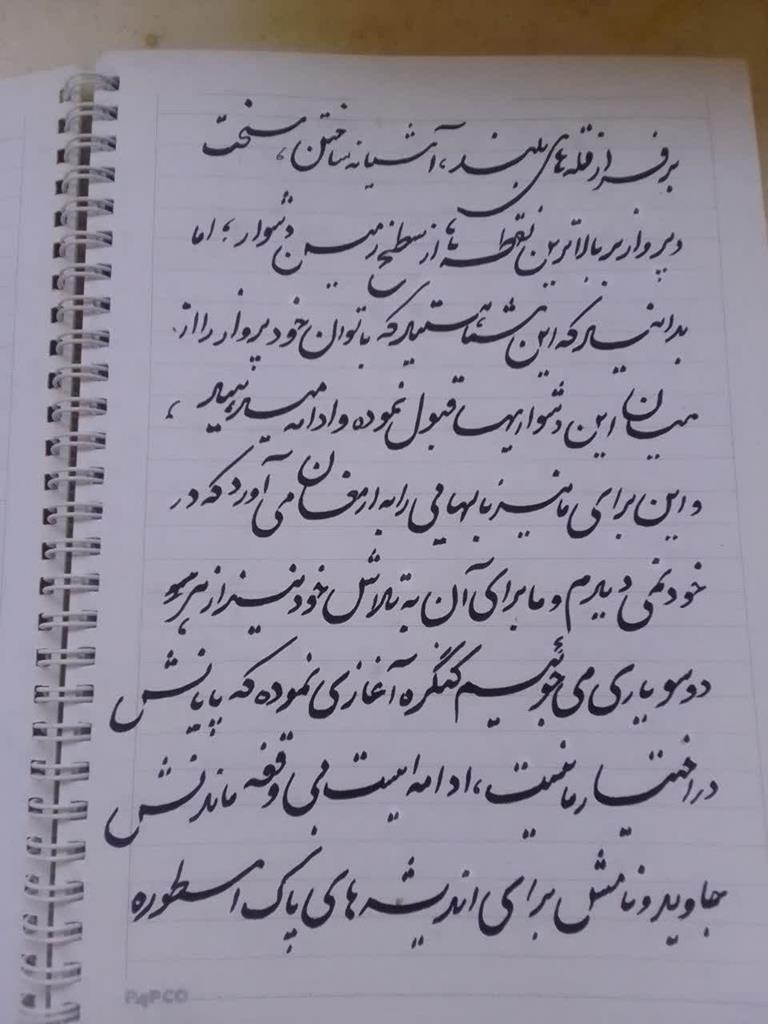 بر فراز قله های بلند، آشیانه ساختن، سخت
و پرواز بر بالاترین نقطه ها، از سطح زمین دشوار؛ اما
بدانید که این شما هستید که با توان خود پرواز را از
میان این دشواریها قبول نموده و ادامه میدهید،
و این برای ما نیز نابهایی را به ارمغان می آورد که در
خود نمی دیدیم و ما برای آن به تلاش خود نیز از هر سو
دو سو یاری می جوئیم کنگره آغازی نموده که پایانش
در اختیار ما نیست، ادامه ایست بی وقفه ماندنش
جاوید و نامش برای اندیشه های پاک اسطوره
PAPCO